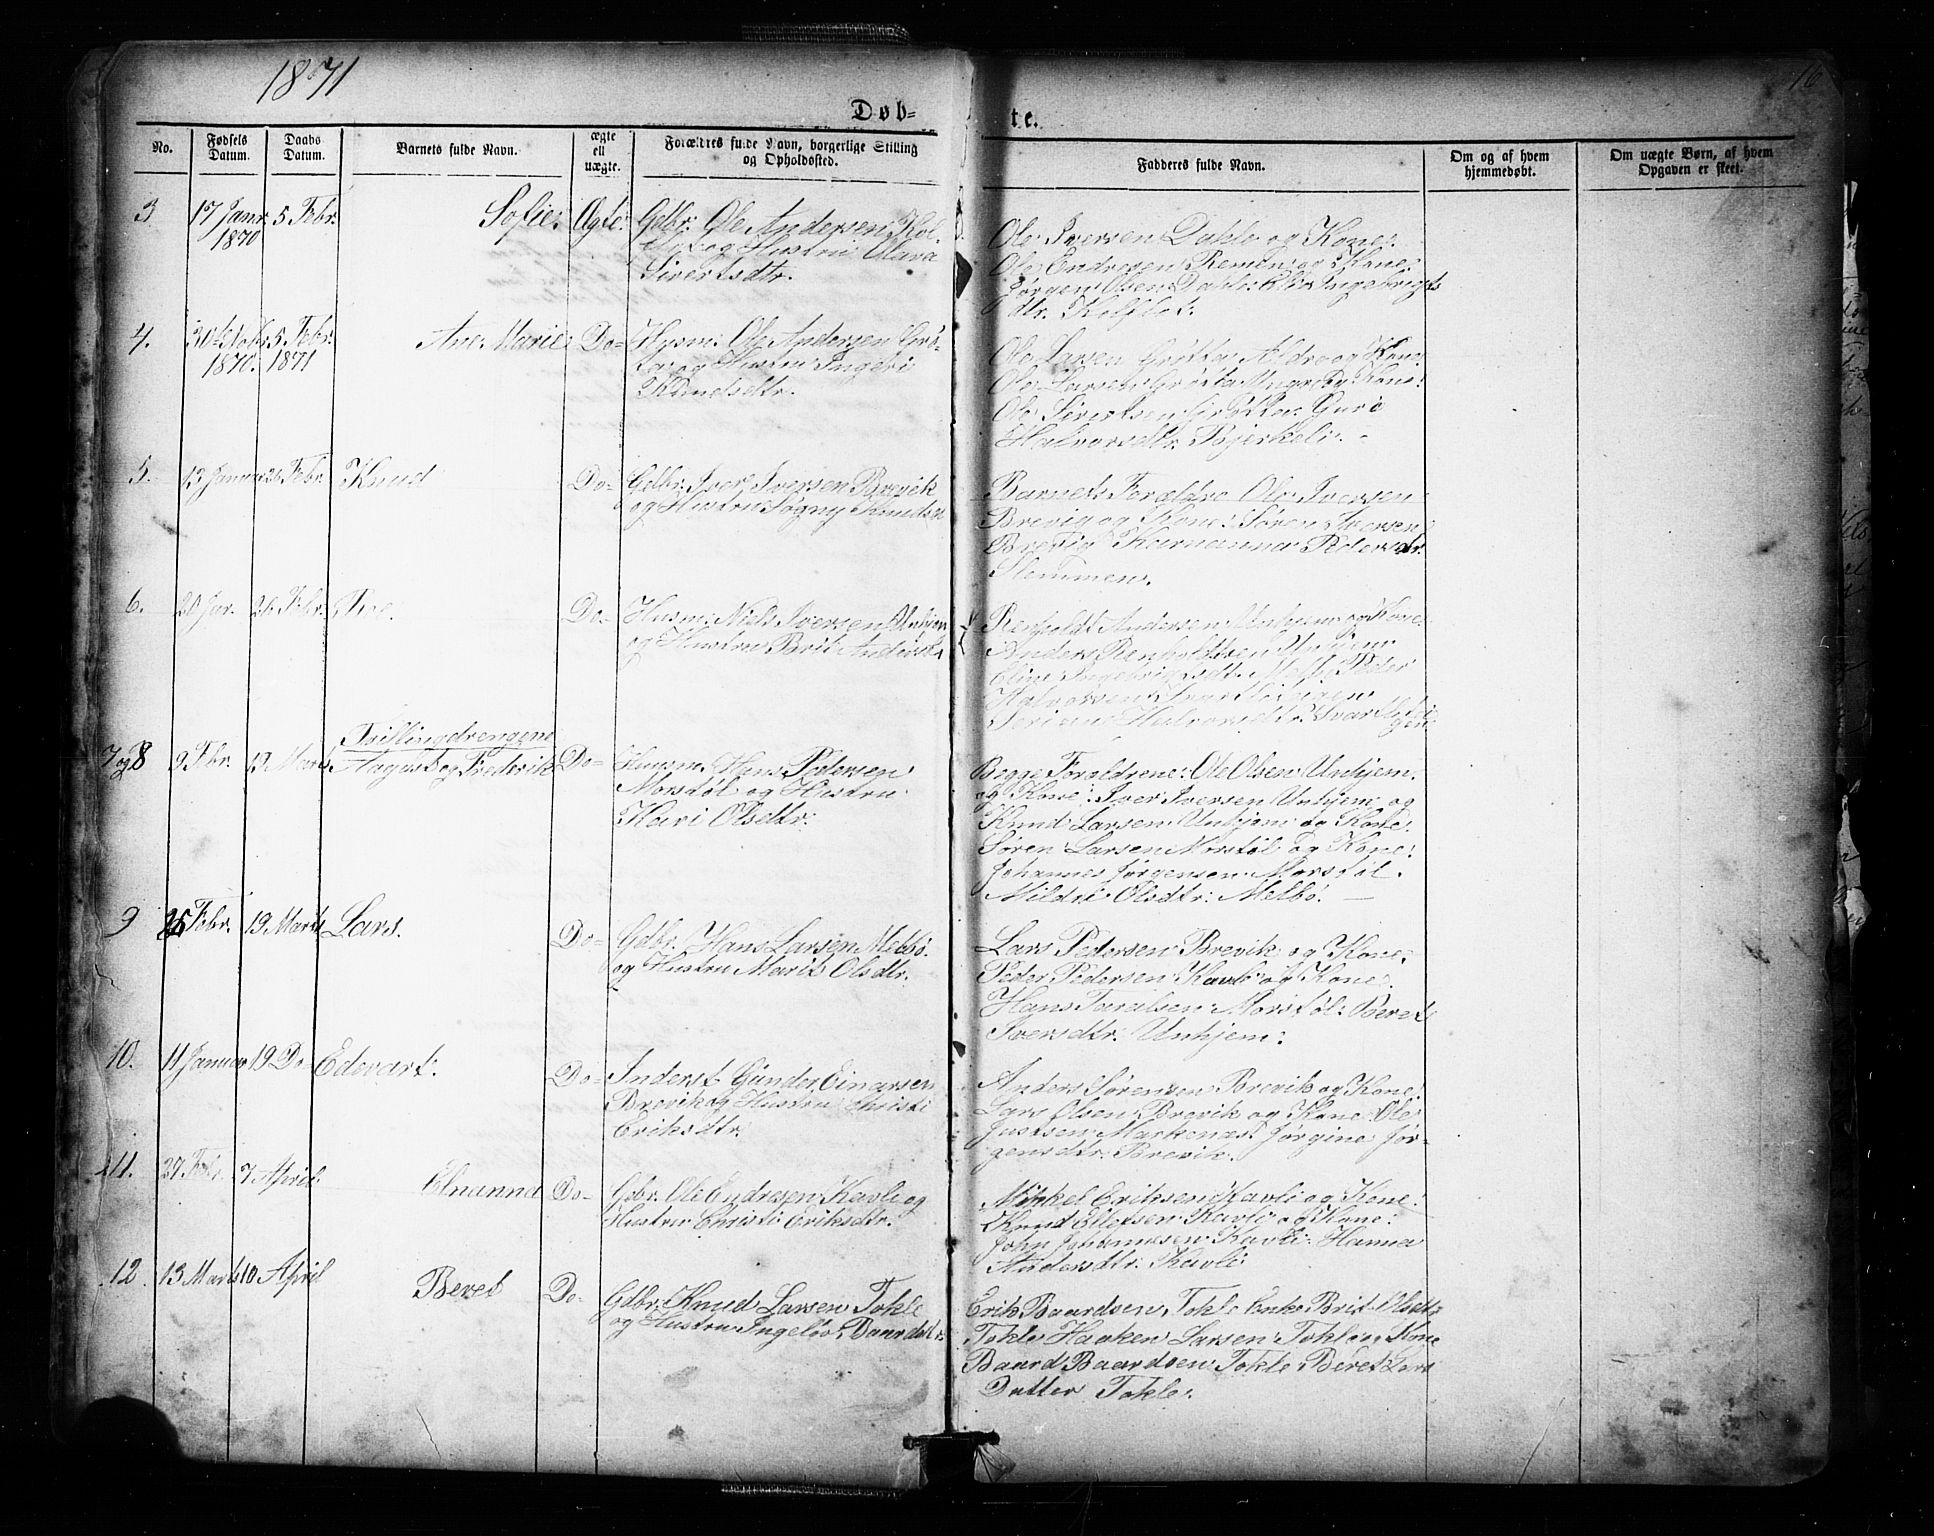 1871
16
Døb-
te.
No.
Fødsels Datum.
Daabs Datum.
Barnets fulde Navn.
ægte ell uægte.
Forældres fulde Navn, borgerlige Stilling og Opholdssted.
Fadderes fulde Navn.
Om og af hvem hjemmedøbt.
Om uægte Børn, af hvem Opgaven er skeet.
3
17 Janr 1870
5 Febr.
Sofie.
Ægte.
Gdbr: Ole Andersen
og Hustru Olava
Sivertsdtr.
Ole Iversen Dahle og Kone:
Ole Endresen Remen og Kone:
Jørgen Olsen Dahle: Ingebrigts
dtr. Kolflot:
4.
1870.
5 Febr. 1871
Ane Marie
Do-
Husm: Ole Andersen Grö-
og Hustru Ingeri
Knudsdtr.
Ole Larsen Grötta Ældre og Kone:
Ole Larsen Grötta Yngre og Kone:
Ole Sivertsen Grötta: Guri
Halvorsdtr. Bjerkeli: -
5.
13 Januar
26 Febr.
Knud
Do-
Gdbr. Iver Iversen Brevik
og Hustru Søgny Knudsd
Barnets Forældre Ole Iversen
Brevig og Kone: Søren Iversen
Brevig Pedersdtr.
Stemmen.
6.
20 Jan.
26 Febr.
Do-
Husm: Niels Iversen Unhjem
og Hustru Brit Andersd
Renholdt Andersen Unhjem og Kone:
Anders Renholdtsen Unhjem
Eline Ingebrigtsdtr. Peder
Halvorsen
Halvorsdtr.
7 og 8
9 Febr.
19 Marts
Tvillingdrengene
August og Frederik
Do-
Huusm. Hans Pedersen
Morstøl og Hustru
Kari Olsdtr:
Begge Forældrene: Ole Olsen Unhjem
og Kone: Iver Iversen Unhjem og
Knud Larsen Unhjem og Kone:
Søren Larsen Morstøl og Kone:
Johannes Jørgensen Morstøl.
Mildri Olsdtr: Melbø. -
9
Febr.
19 Marts
Lars.
Do-
Gdbr. Hans Larsen Melbø
og Hustru Marit Olsdtr.
Lars Pedersen Brevik og Kone,
Peder Pedersen Kavli og Kone.
Hans Taralsen: Morstøl: Beret
Iversdtr: Unhjem:
10.
11 Januar
19 Do-
Edevart:
Do-
Inderst Gunder Einarsen
Brevik og Hustru Christi
Eriksdtr.
Anders Sørensen Brevik og Kone:
Lars Olsen Brevik og Kone: Ole
Justsen Markenæs: Jørgine Jør-
gensdtr: Brevik.
11.
27 Febr.
7 April
Elnanna
Do-
Gdbr. Ole Endresen Kavli og
Hustru Christi Eriksdtr.
Mikkel Eriksen Kavli og Kone:
Knud Ellefsen Kavli og Kone:
John Johannesen Kavli: Hanna
Andersdtr. Kavli
12
13 Marts
10 April
Beret
Do-
Gdbr. Knud Larsen Tokle
og Hustru Ingelöv Baardsdtr:
Erik Baardsen Tokle Enke Brit Olsdtr
Tokle Haaken Larsen Tokle og Kone
Baard Baardsen Tokle Beret Lars
Datter Tokle.